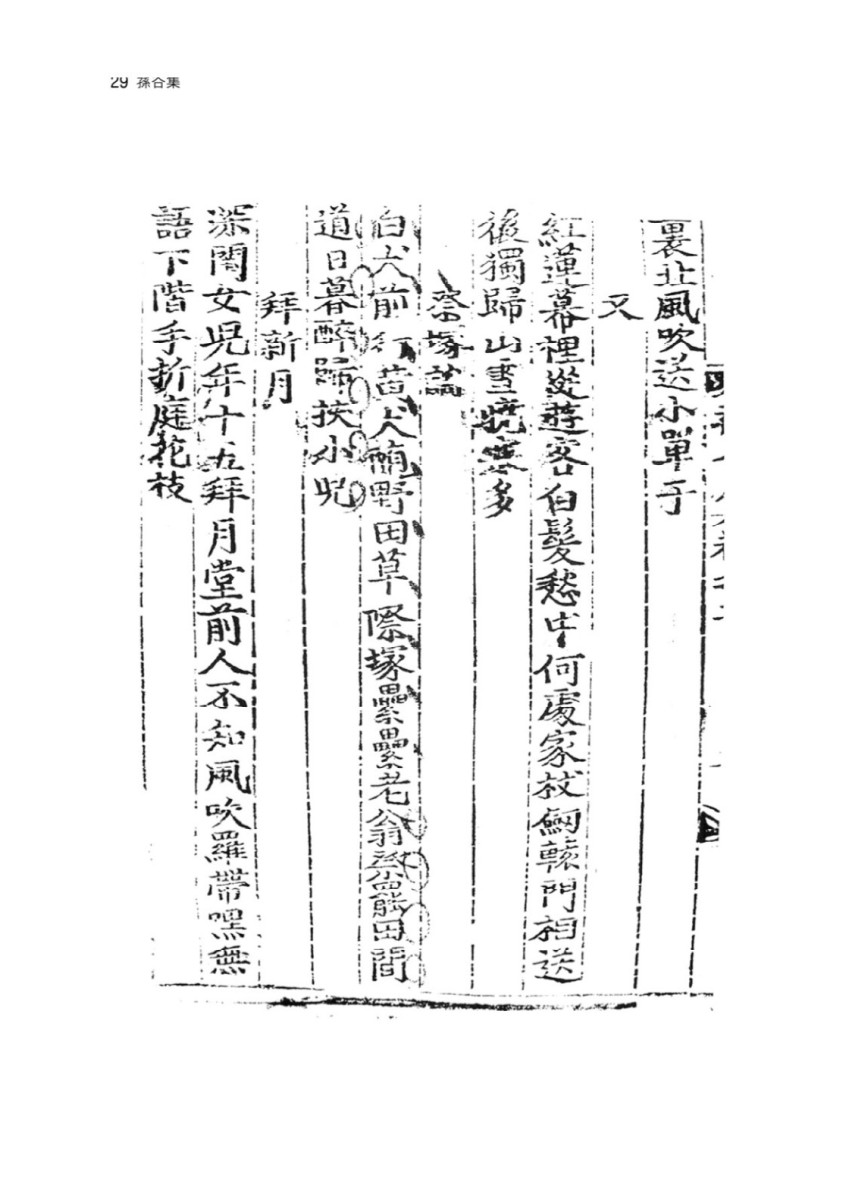 29 孫合集
裏北風吹送小單于
又
紅蓮幕裡從遊客白髮愁中何處家杖劒轅門相送
後獨歸山 寒多
祭塚謠
白犬前行黃犬隨野田草際塚纍纍老翁祭罷田間
道日暮醉歸扶小児
拜新月
深閨女児年十五拜月堂前人不知風吹羅帶嘿無
語下階手折庭花枝